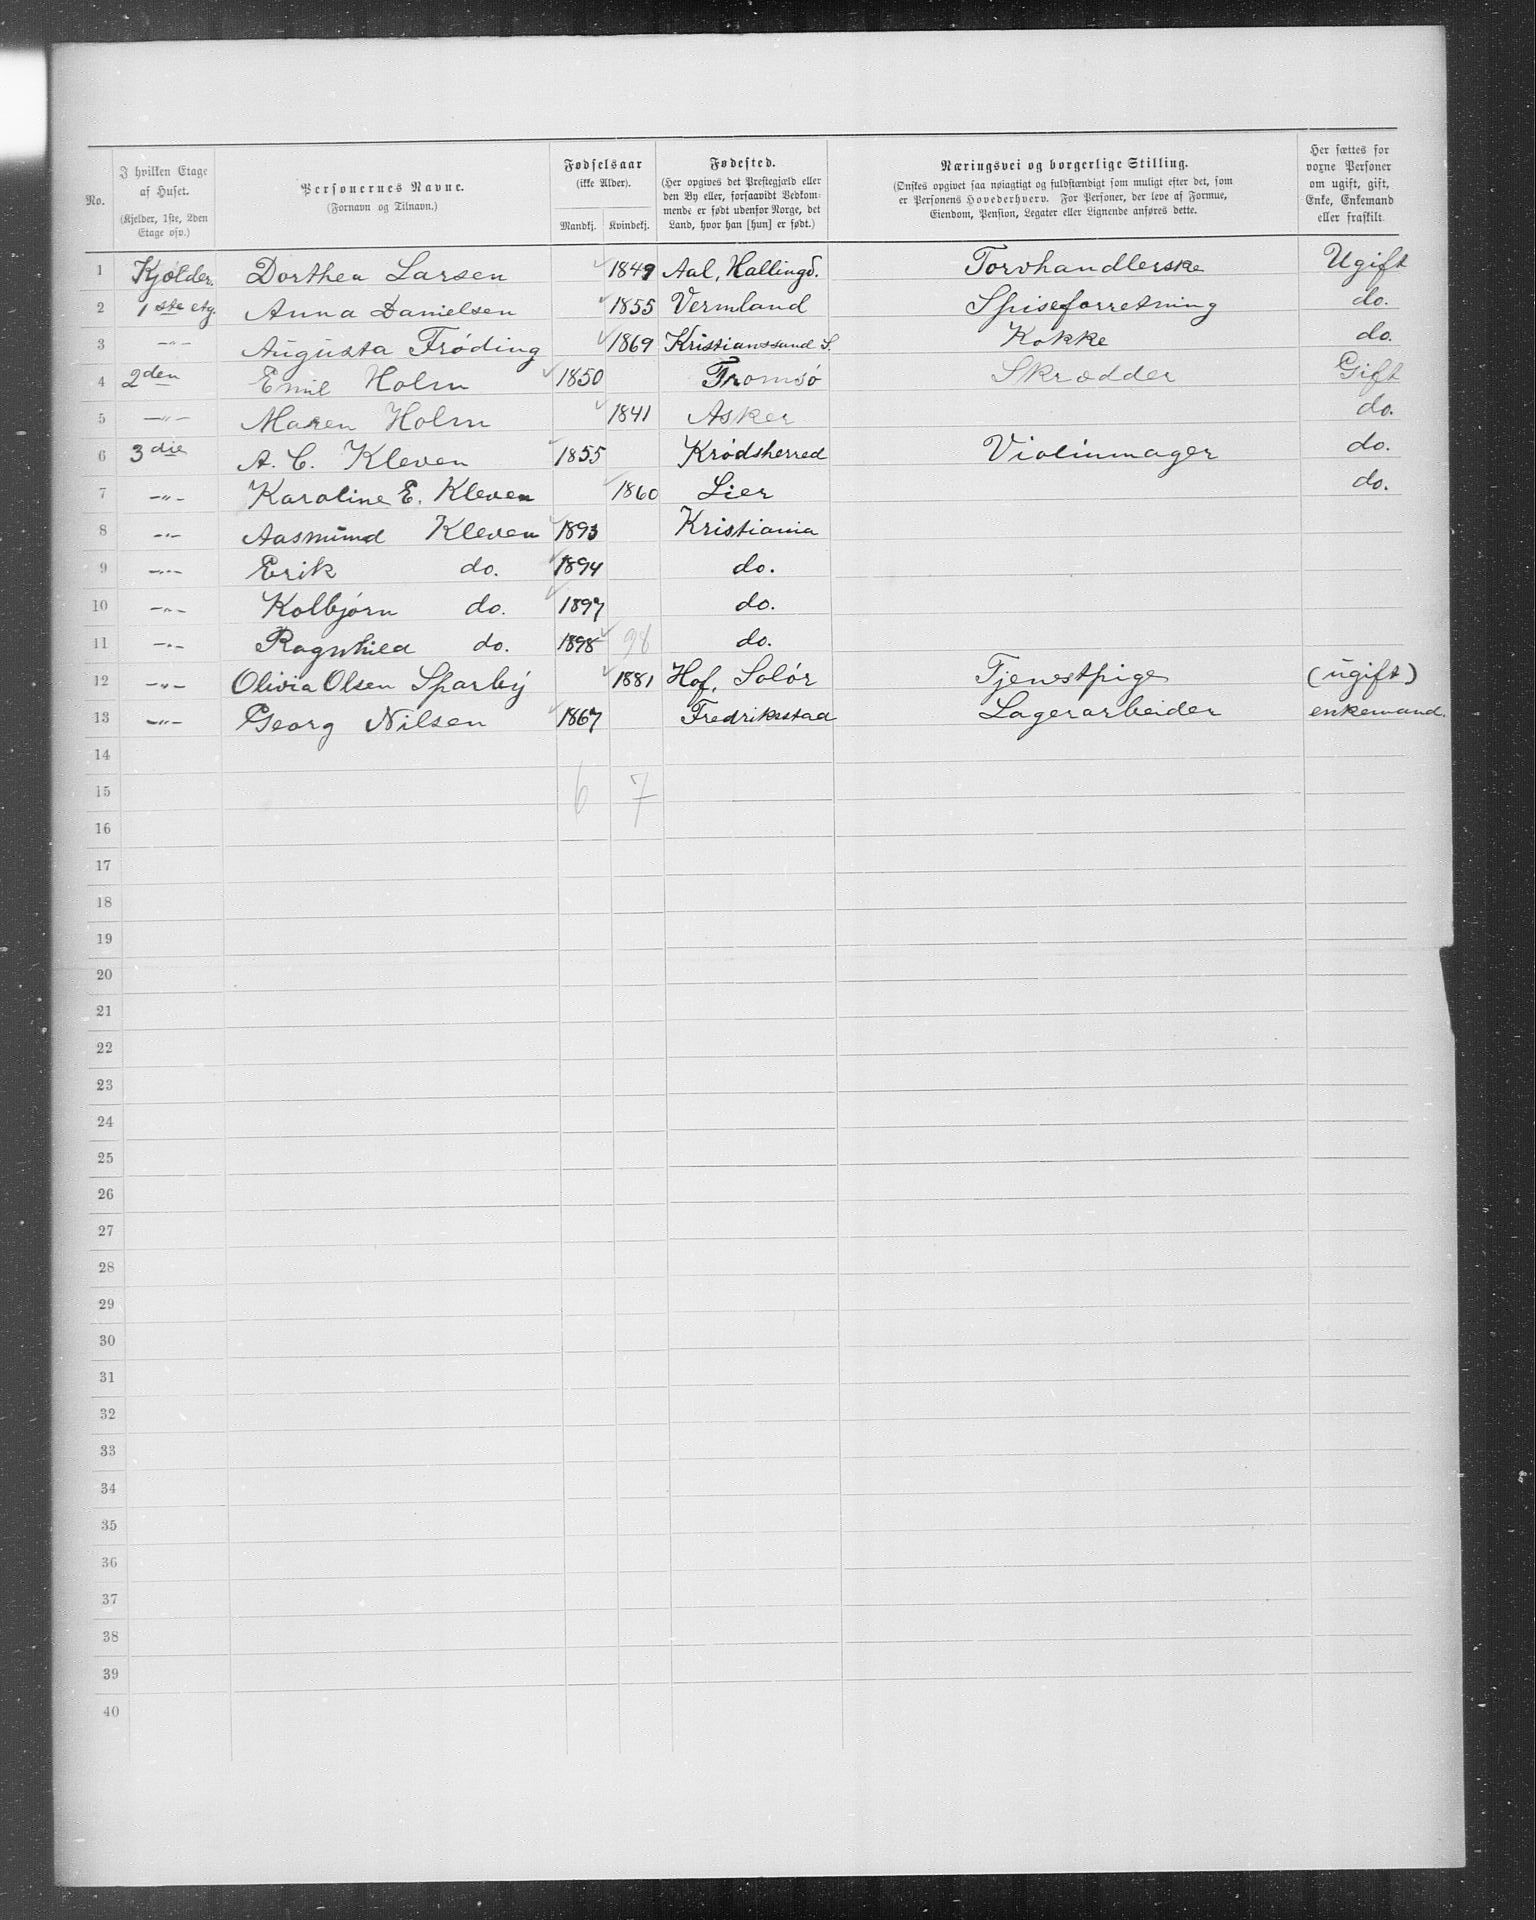 No.
I hvilken Etage af Huset.
(Kjelder, 1ste, 2den Etage osv.)
Personernes Navne.
(Fornavn og Tilnavn.)
Fødselsaar
(ikke Alder).
Mandkj. Kvindekj.
Fødested.
(Her opgives det Prestegjæld eller
den By eller, forsaavidt Vedkom-
mende er født udenfor Norge, det
Land, hvor han [hun] er født.)
Næringsvei og borgerlige Stilling.
(Ønskes opgivet saa nøiagtigt og fuldstændigt som muligt efter det, som
er Personens Hovederhverv. For Personer, der leve af Formue,
Eiendom, Pension, Legater eller Lignende anføres dette.
Her sættes for
voxne Personer
om ugift, gift,
Enke, Enkemand
eller fraskilt.
1 Kjælder. Dorthea Larsen 1849 Aal, Hallingd. Torvhandlerske Ugift
2 1ste etg. Anna Danielsen 1855 Vermland Spiseforretning do.
3 —"— Augusta Frøding 1869 Kristianssund S. Kokke do.
4 2den Emil Holm 1850 Tromsø Skrædder Gift
5 —"— Maren Holm 1841 Asker do.
6 3die A. C. Kleven 1855 Krødsherred Violinmager do.
7 —"— Karoline E. Kleven 1860 Lier do.
8 —"— Aasmund Kleven 1893 Kristiania
9 —"— Erik do. 1894 do.
10 —"— Kolbjørn do. 1897 do.
11 —"— Ragnhild do. 1898 98 do.
12 —"— Olivia Olsen Sparby 1881 Hof, Solør Tjenestpige (ugift)
13 —"— Georg Nilsen 1867 Fredriksstad Lagerarbeider enkemand.
14
15 6 7
16
17
18
19
20
21
22
23
24
25
26
27
28
29
30
31
32
33
34
35
36
37
38
39
40